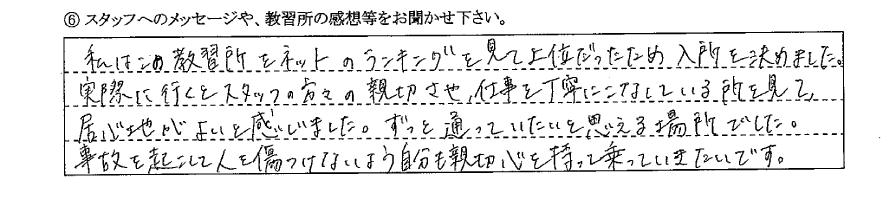 ⑥ スタッフへのメッセージや、教習所の感想等をお聞かせ下さい。
私はこの教習所をネットのランキングを見て上位だったため入所を決めました。
実際に行くとスタッフの方々の親切さや、仕事を丁寧にこなしている所を見て、
居心地がよいと感じました。ずっと通っていたいと思える場所でした。
事故を起こして人を傷つけないよう自分も親切心を持って乗っていきたいです。